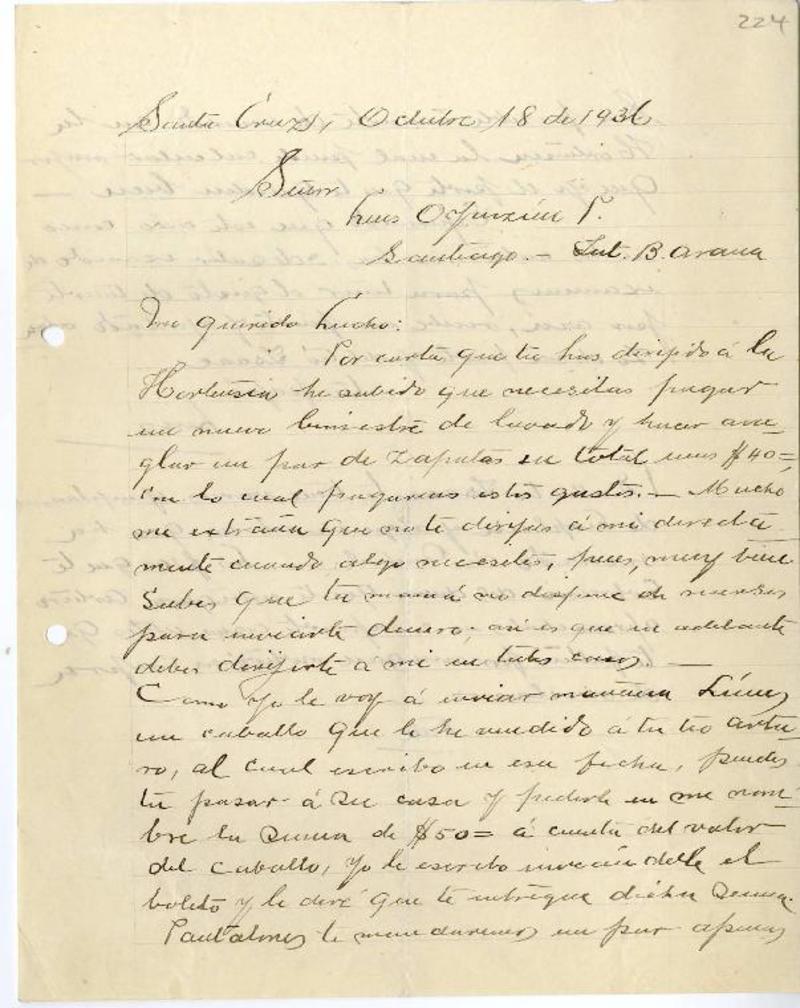 224
Santa Cruz, Octubre 18 de 1936
Señor
Luis Oyarzún P.
Santiago.- Int. B. Arana
Mi querido Lucho:
Por carta que tu has dirijido á la
Hortensia he sabido que necesitas pagar
un nuevo bimestre de lavado y hacer arre-
glar un par de zapatos en total unos $40=,
con lo cual pagarias estos gastos.- Mucho
me extraña que no te dirijas á mi directa
mente cuando algo necesites, pues, muy bien
sabes que tu mamá no dispone de recursos
para enviarte dinero; asi es que en adelante
debes dirijirte á mi en todos casos.-
Como yo le voy á enviar mañana Lúnes
un caballo que le he vendido á tu tio Artu-
ro, al cual escribo en esa fecha, puedes
tu pasar á su casa y pedirle en mi nom-
bre la suma de $50= á cuenta del valor
del caballo, yo le escribo enviandole el
boleto y le diré que te entregue dicha suma.
Pantalones te mandaremos un par apenas